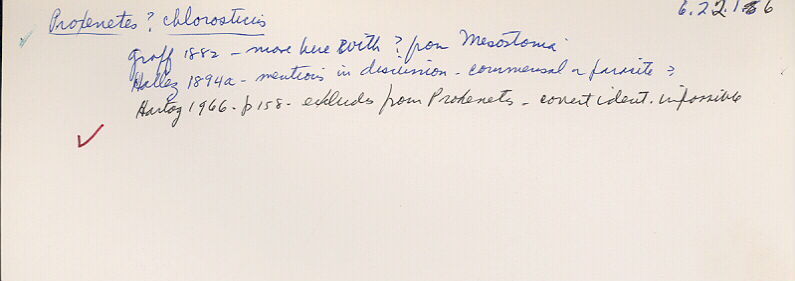 6.22.1.86
Proxenetes? chlorosticus
Graff 1882 - move here with ? from Mesostoma
Hallez 1894a - mentions in discussion - commensal or parasite?
Hartog 1966 - p 158 - excludes from Proxenets - correct ident. impossible